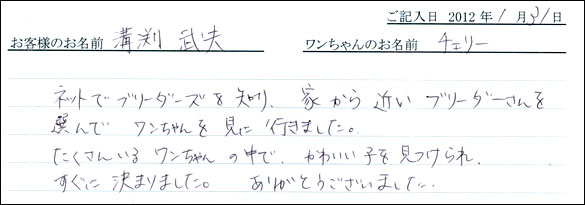 ご記入日 2012 年 1 月 31 日
お客様のお名前 溝渕 武夫 ワンちゃんのお名前 チェリー
ネットでブリーダーズを知り、家から近いブリーダーさんを
選んでワンちゃんを見に行きました。
たくさんいるワンちゃんの中で、かわいい子を見つけられ、
すぐに決まりました。 ありがとうございました。